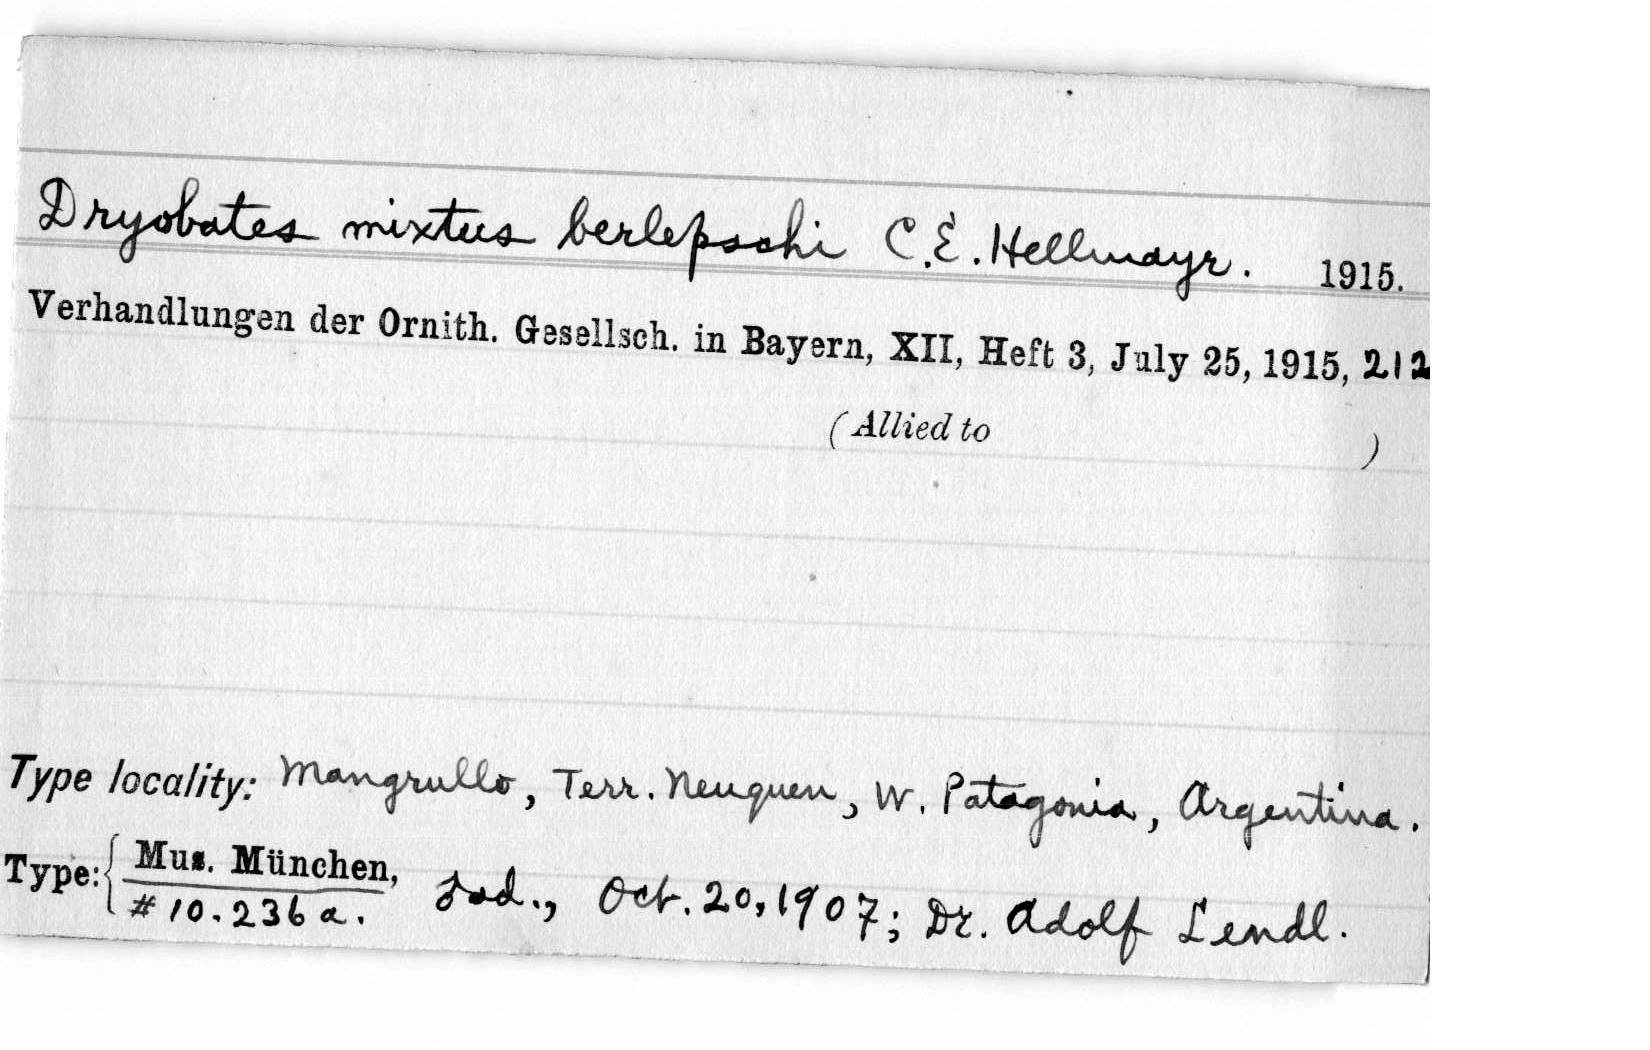 Dryobates mixtus berlepschi C.E. Hellmayr. 1915.
Verhandlungen der Ornith. Gesellsch. in Bayern, XII, Heft 3, July 25, 1915, 212
(Allied to )
Type locality: Mangrullo, Terr. Neuquen, W. Patagonia, Argentina.
Type: { Mus. München, ♂ad., Oct. 20, 1907; Dr. Adolf Lendl.
# 10.236a.